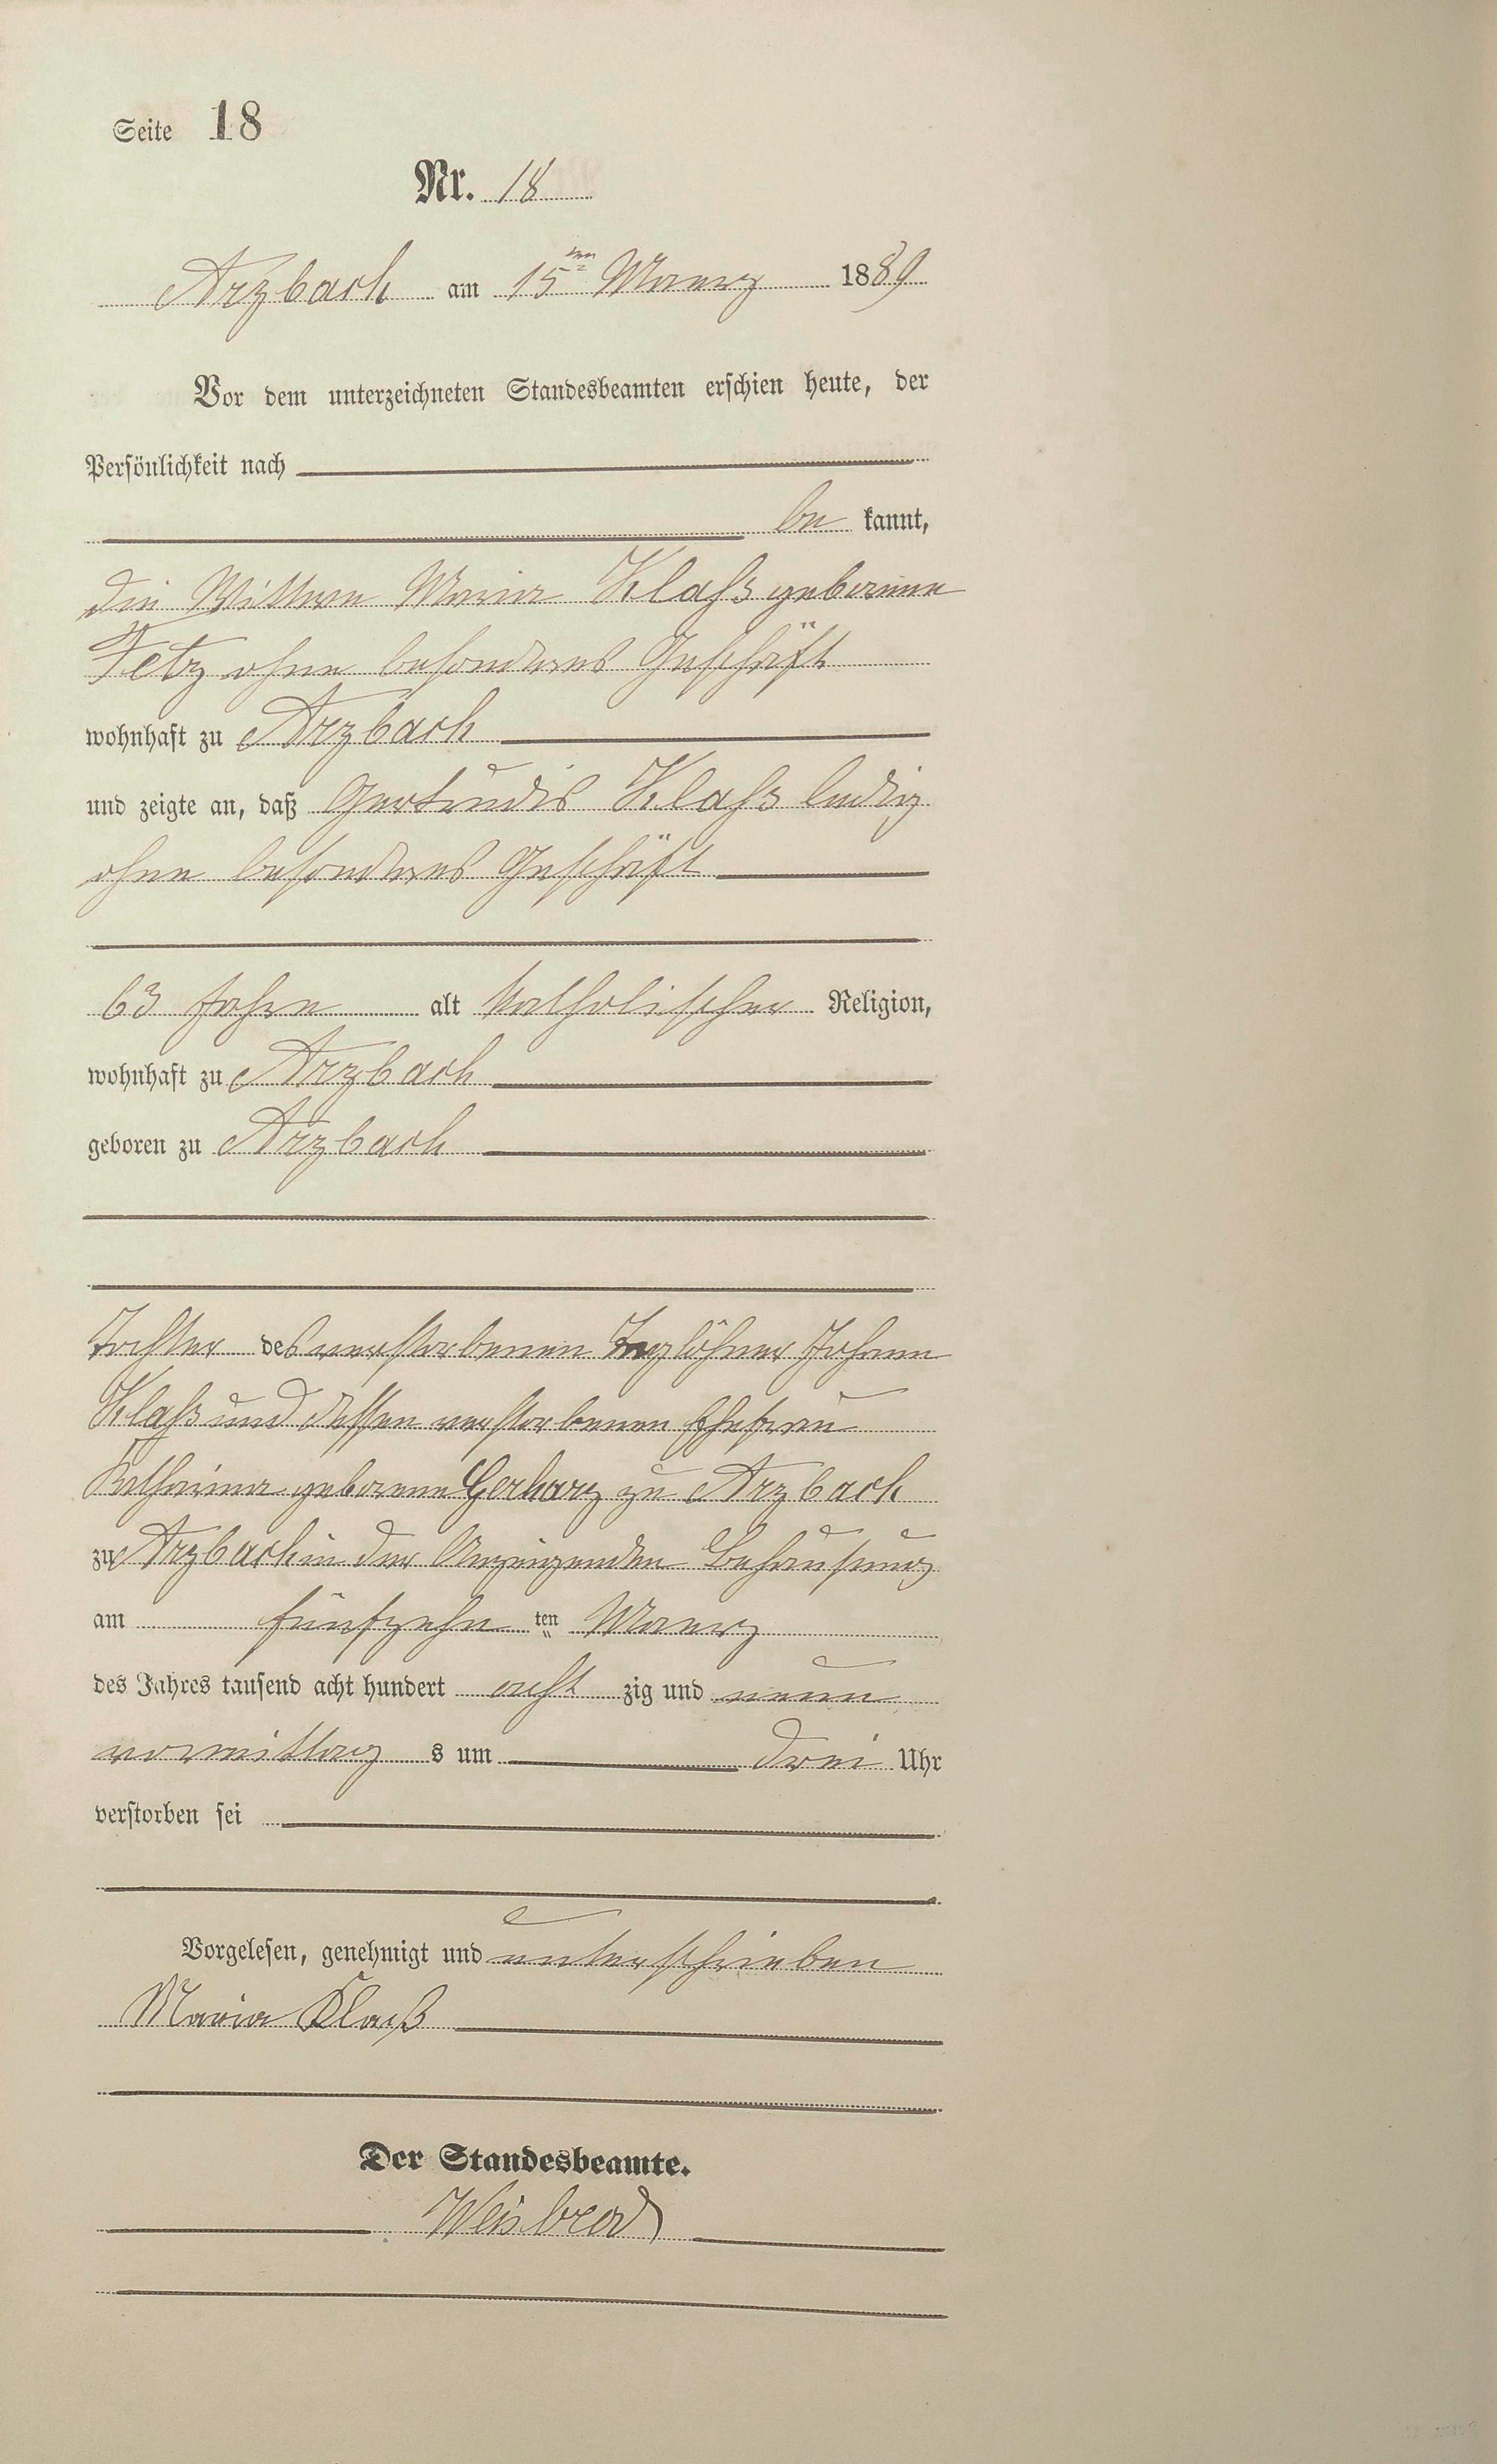 Seite 18
Nr. 18
Arzbach am 15ten Maerz 1889
Vor dem unterzeichneten Standesbeamten erschien heute, der
Persönlichkeit nach
be kannt,
die Wittwe Maria Klahs geborene
Fetz ohne besonderes Geschäft
wohnhaft zu Arzbach
und zeigte an, daß Gertrudis Klahs ledig
ohne besonderes Geschäft
63 Jahre alt katholischer Religion,
wohnhaft zu Arzbach
geboren zu Arzbach
Tochter des verstorbenen Taglöhner Johann
Klahs und dessen verstorbenen Ehefrau
Katharina geborene Gerharz zu Arzbach
zu Arzbach in der Anzeigenden Behausung
am fünfzehn ten Maerz
des Jahres tausend acht hundert acht zig und neun
vormittag s um drei Uhr
verstorben sei
Vorgelesen, genehmigt und unterschrieben
Maria Klaß
Der Standesbeamte.
Weisbrod